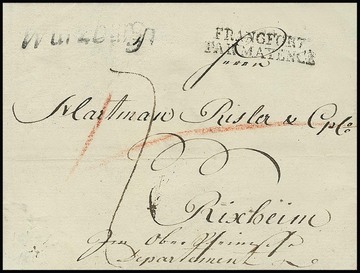 Würzburg
FRANCFORT
PAR MAYENCE
Herrn
Hartman Risler & Cple
Rixheim
im Ober Rheinischen
Departement